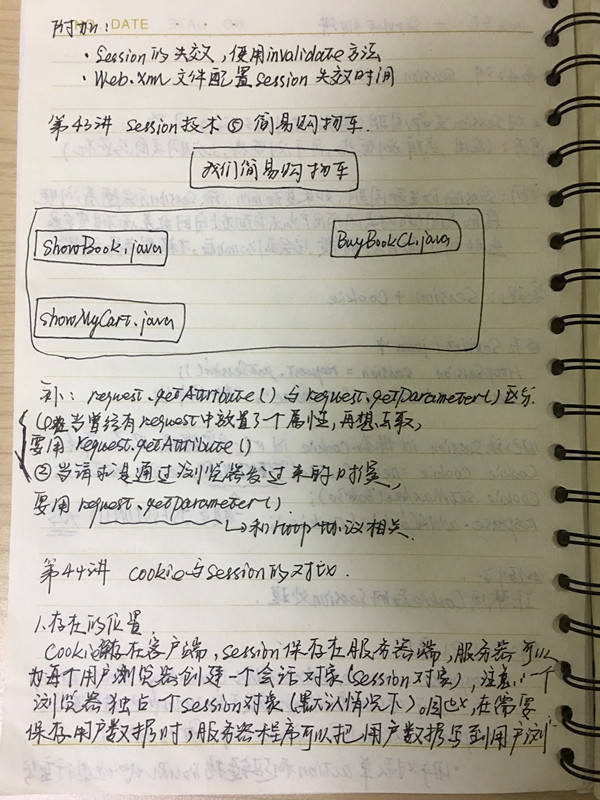 NO. DATE
附加:
· Session的失效,使用invalidate方法
· Web.xml 文件配置session失效时间
第43讲 session技术⑤ 简易购物车.
我们简易购物车
ShowBook.java
BuyBookCl.java
ShowMyCart.java
补: request.getAttribute() 与 request.getParameter() 区分
①在当曾经有request中放置了一个属性,再想去取,
要用 request.getAttribute()
②当请求是通过浏览器发过来的时候,
要用 request.getParameter().
和http协议相关.
第44讲 cookie与session的对比.
1.存在的位置.
Cookie存在客户端,session保存在服务器端,服务器可以
为每个用户浏览器创建一个会话对象(session对象),注意:一个
浏览器独占一个session对象(默认情况下)。因此,在需要
保存用户数据时,服务器程序可以把用户数据写到用户浏